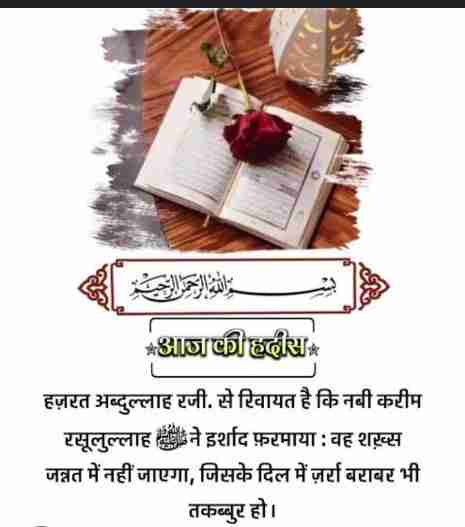 بسم الله الرحمن الرحيم
आज की हदीस
हज़रत अब्दुल्लाह रजी. से रिवायत है कि नबी करीम
रसूलुल्लाह ﷺ ने इर्शाद फ़रमाया : वह शख़्स
जन्नत में नहीं जाएगा, जिसके दिल में ज़र्रा बराबर भी
तकब्बुर हो।